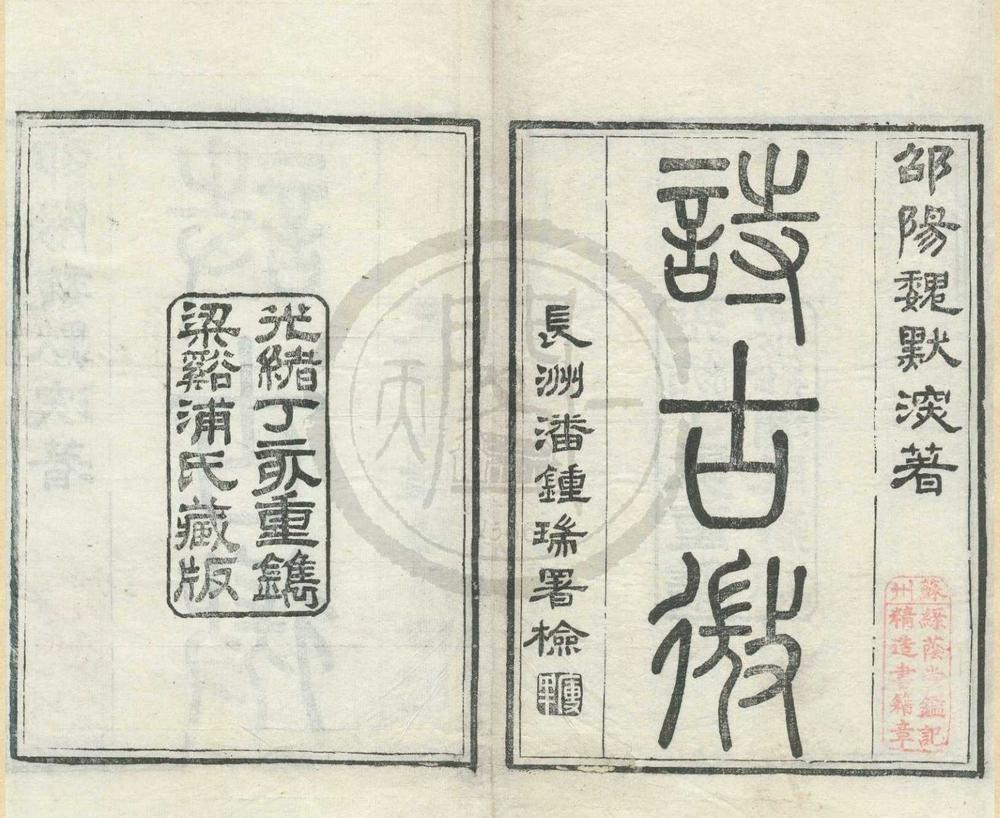 邵陽魏默深著
詩古微
長洲潘鍾瑞署檢
蘇綠蔭堂鑑記
州精造書籍章
光緒丁亥重鐫
梁谿浦氏藏版